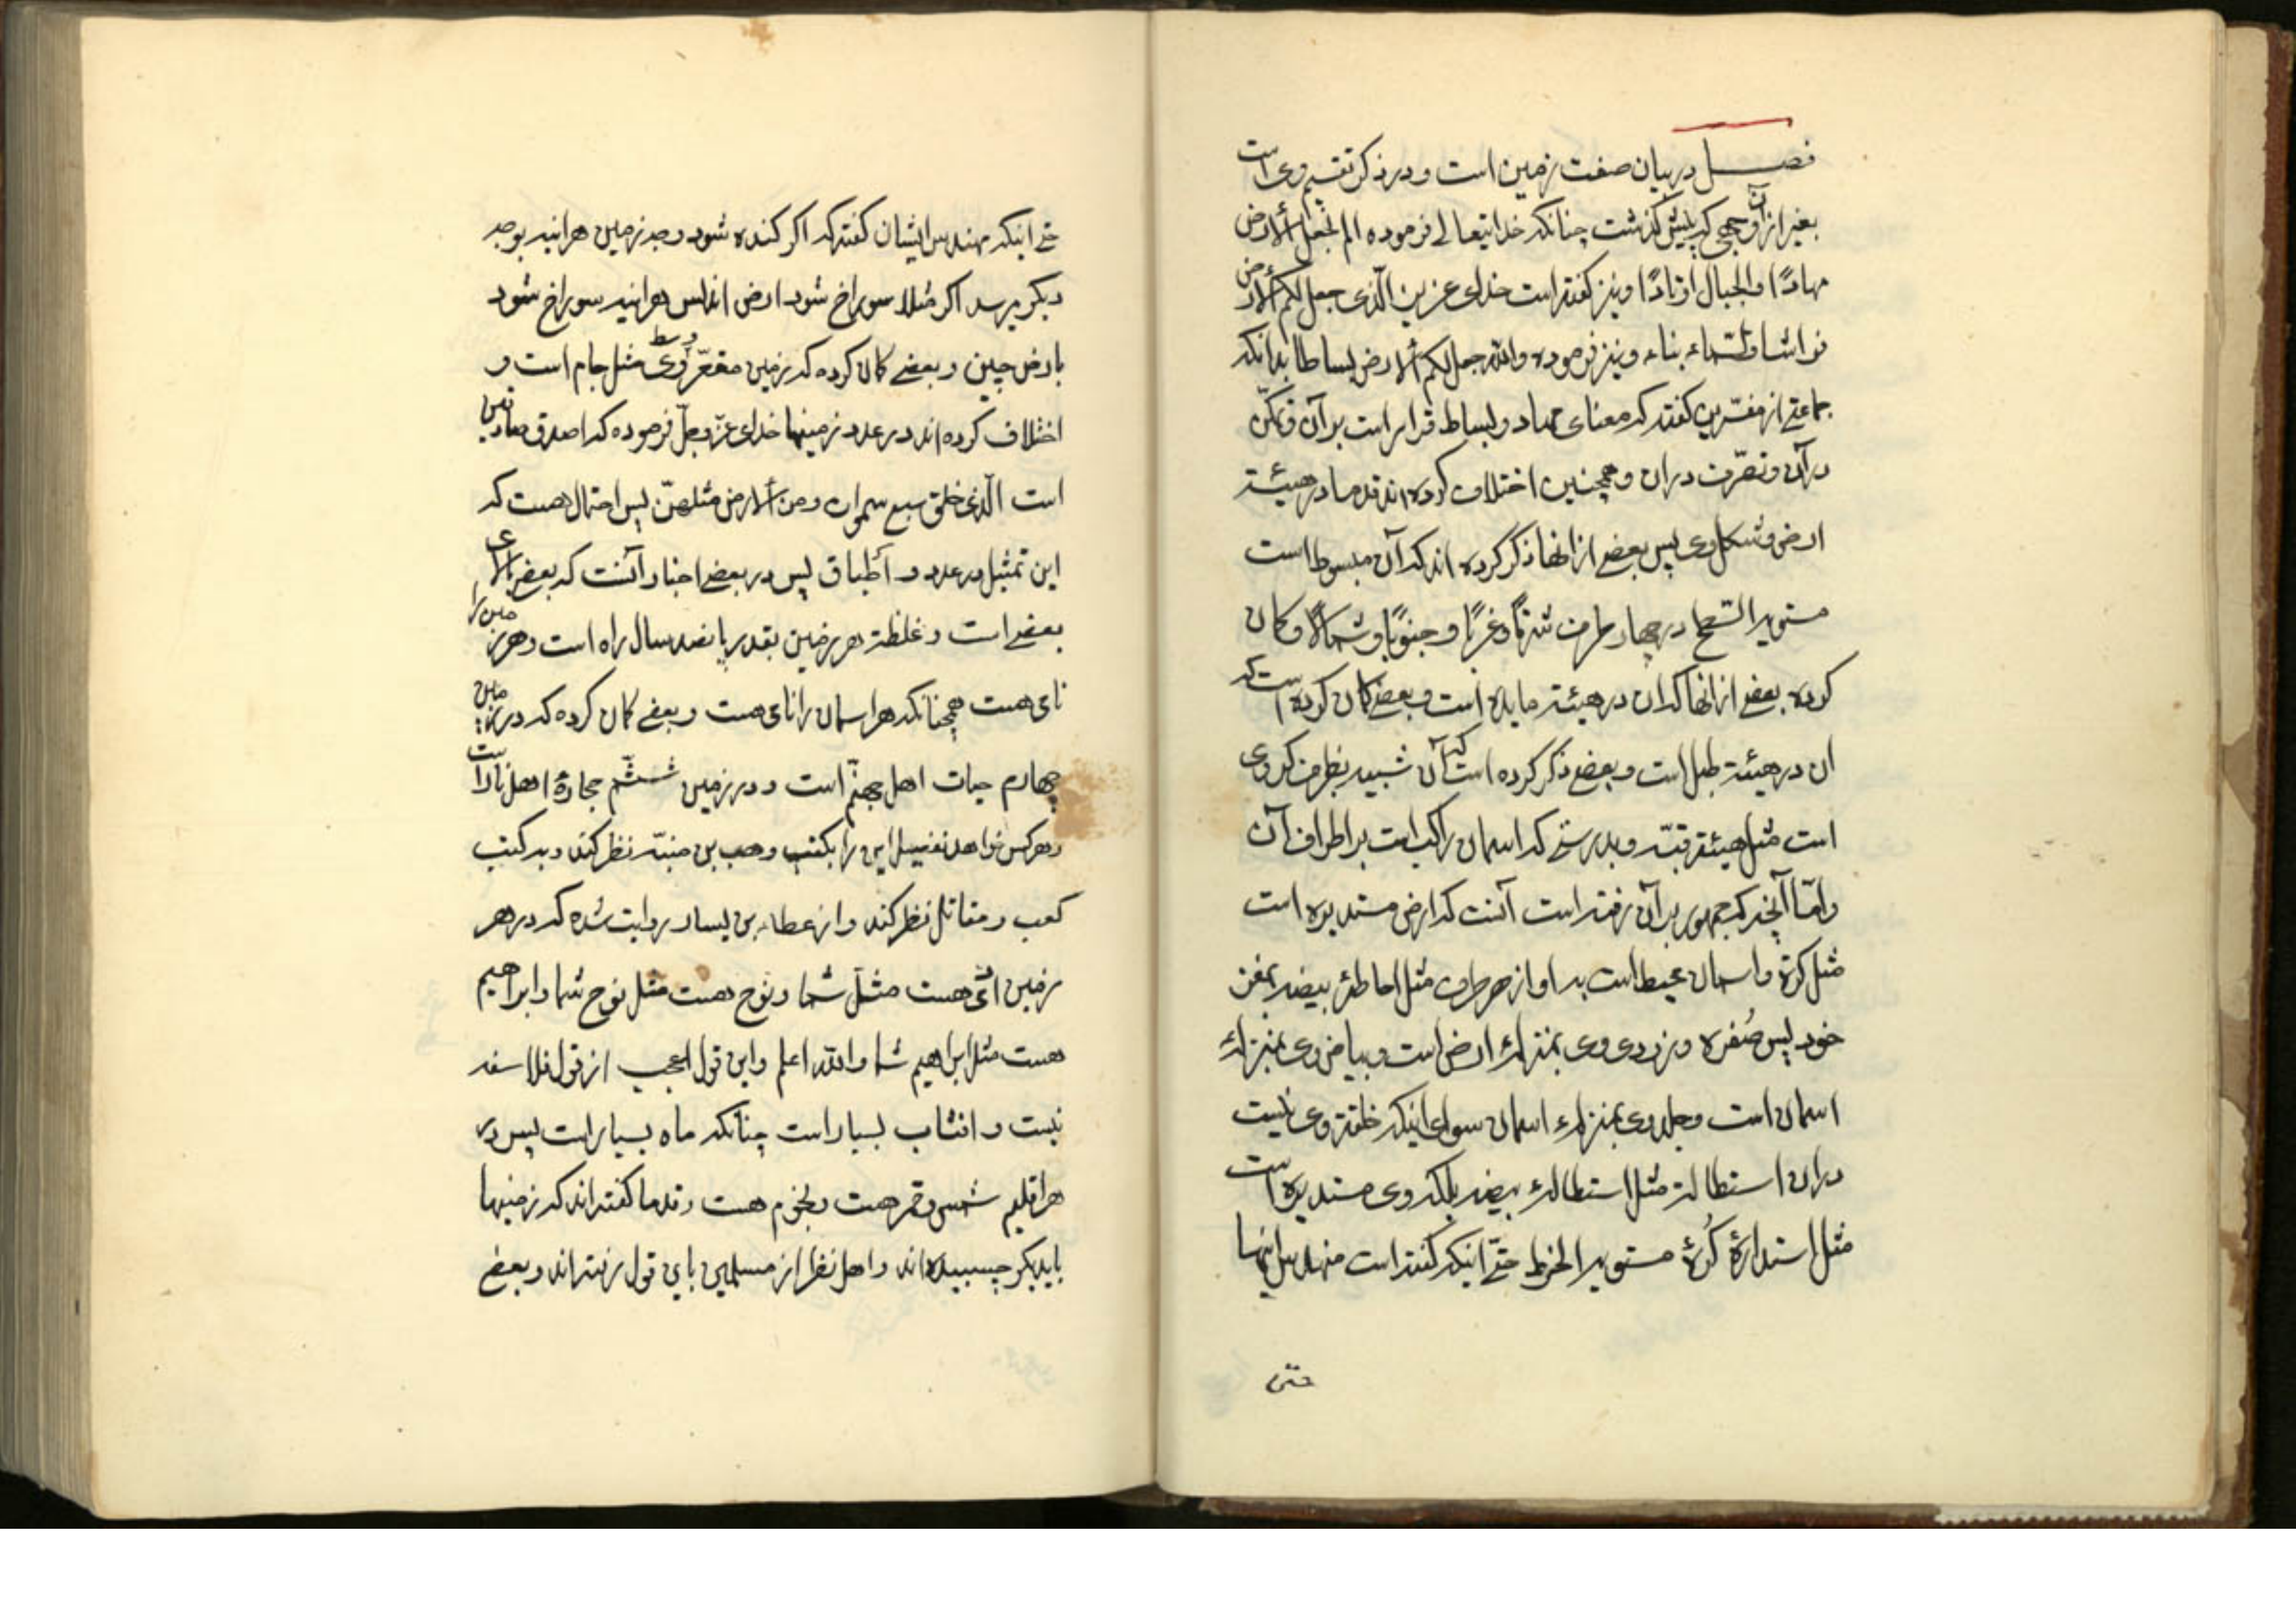 فصل در بیان صفت زمین است و در ذکر تقسیم وی است
بغیر از آن وجهی که پیش گذشت چنانکه خدایتعالی فرموده الم نجعل الأرض
مهادًا والجبال اوتادًا و نیز گفته است خدای عزیز الّذی جعل لکم الأرض
فراشا والسّماء بناء و نیز فرموده والله جعل لکم الأرض بساطا بدانکه
جماعتی از مفسّرین گفته که معنای مهاد و بساط قرار است بر آن و تمکّن
در آن و تصرّف دران و همچنین اختلاف کرده اند قدما در هیئة
ارض و شکل وی پس بعضی از انها ذکر کرده اند که آن مبسوط است
مستویر السّطح در چهار طرف شرقًا و غربًا و جنوبًا و شمالًا و کمان
کرده بعضی از انها که ان در هیئة مایده است و بعضی کمان کرده است که
ان در هیئة طبل است و بعضی ذکر کرده است که آن شبیه بطرف کروی
است مثل هیئة قبّه و بدرستی که اسمان راکب است بر اطراف آن
و امّا آنچه که جمهور بر آن رفته است آنست که ارض مستدیره است
مثل کرة و اسمان محیط است بر او از هر طرف مثل احاطهٔ بیضه بمغز
خود پس صُفره و زردی وی بمنزلهٔ ارض است و بیاض وی بمنزلهٔ
اسمان است و جلد وی بمنزلهٔ اسمان سوای اینکه خلقة وی نیست
دران استطالة مثل استطالهٔ بیضه بلکه وی مستدیره است
مثل استدارهٔ کُرهٔ مستویر الخرط حتّی اینکه گفته است مهندس اینها
حتی
حتی اینکه مهندس ایشان گفته که اکر کنده شود وجه زمین هراینه بوجه
دیکر میرسد اکر مثلا سوراخ شود ارض اندلس هراینه سوراخ شود
بارض چین و بعضی کمان کرده که زمین مقعّر وسط وی مثل جام است و
اختلاف کرده اند در عدد زمینها خدای عزّ وجلّ فرموده که اصدق صادقین
است الّذی خلق سبع سموات ومن الأرض مثلهنّ پس احتمال هست که
این تمثیل در عدد و اطباق پس در بعضی اخبار آنست که بعضی بالای
بعضی است و غلظة هر زمین بقدر پانصد سال راه است و هر زمین را
نای هست همچنانکه هر اسمان را نای هست و بعضی کمان کرده که در زمین
چهارم حیات اهل جهنّم است و در زمین ششّم حجارهٔ اهل نار است
و هر کس خواهد تفصیل این را بکتب وهب بن منبّه نظر کند و بر کتب
کعب و مقاتل نظر کند و از عطاء بن یسار روایت شده که در هر
زمین ادمی هست مثل شما و نوح هست مثل نوح شما و ابراهیم
هست مثل ابراهیم شما والله اعلم و این قول اعجب از قول فلاسفه
نیست و افتاب بسیار است چنانکه ماه بسیار است پس در
هر اقلیم شمس و قمر هست و نجوم هست و قدما گفته اند که زمینها
بایدیکر چسبیده اند و اهل نظر از مسلمین باین قول رفته اند و بعضی